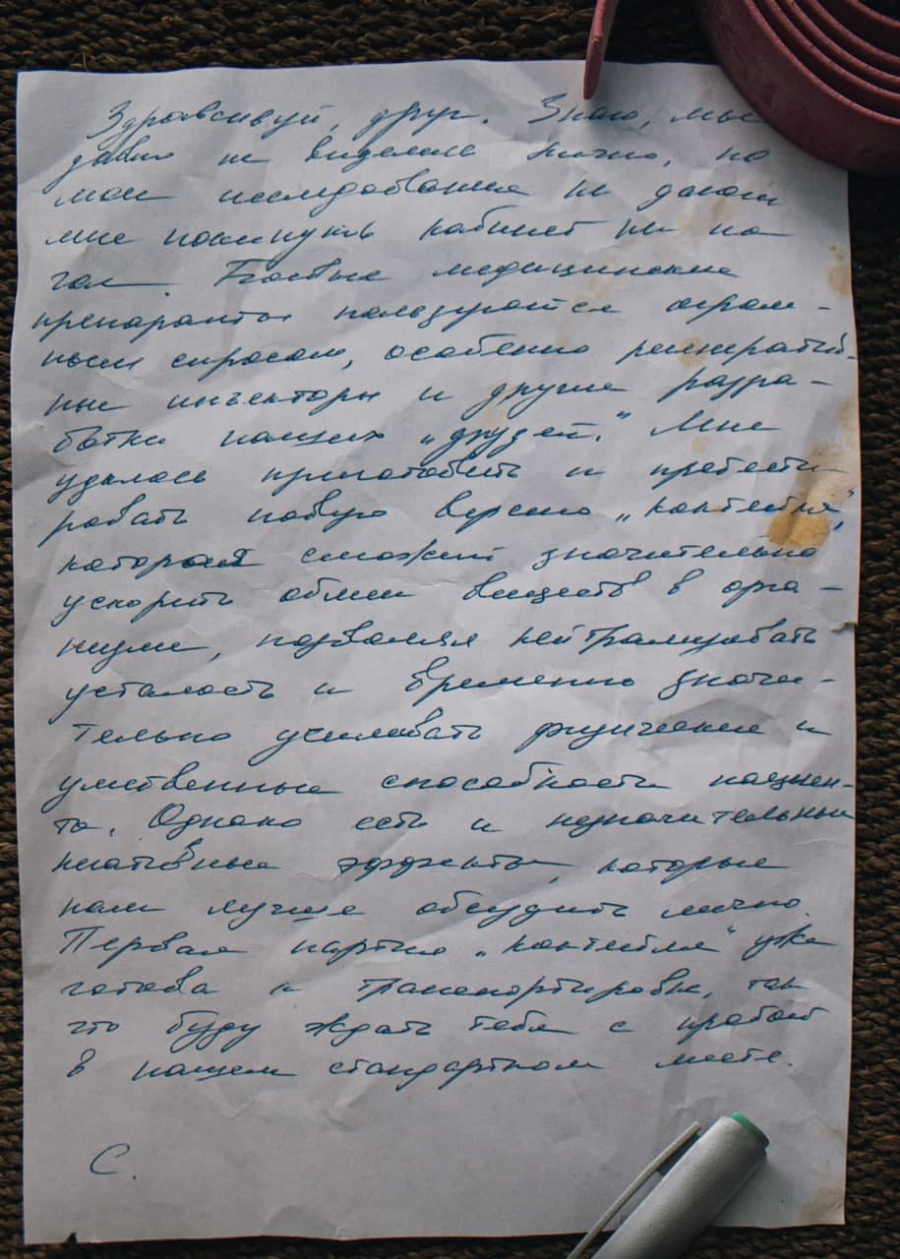 Здравствуй, друг. Знаю, мы
давно не виделись лично, но
мои исследования не дают
мне покинуть кабинет ни на
час. Боевые медицинские
препараты пользуются огром-
ным спросом, особенно регенератив-
ные инъекторы и другие разра-
ботки наших „друзей." Мне
удалось приготовить и протести-
ровать новую версию „коктейля",
которая сможет значительно
ускорить обмен веществ в орга-
низме, позволяя нейтрализовать
усталость и временно значи-
тельно усиливать физические и
умственные способности пациен-
та. Однако есть и незначительные
негативные эффекты, которые
нам лучше обсудить лично.
Первая партия „коктейля" уже
готова к транспортировке, так
что буду ждать тебя с
в нашем стандартном месте.
С.